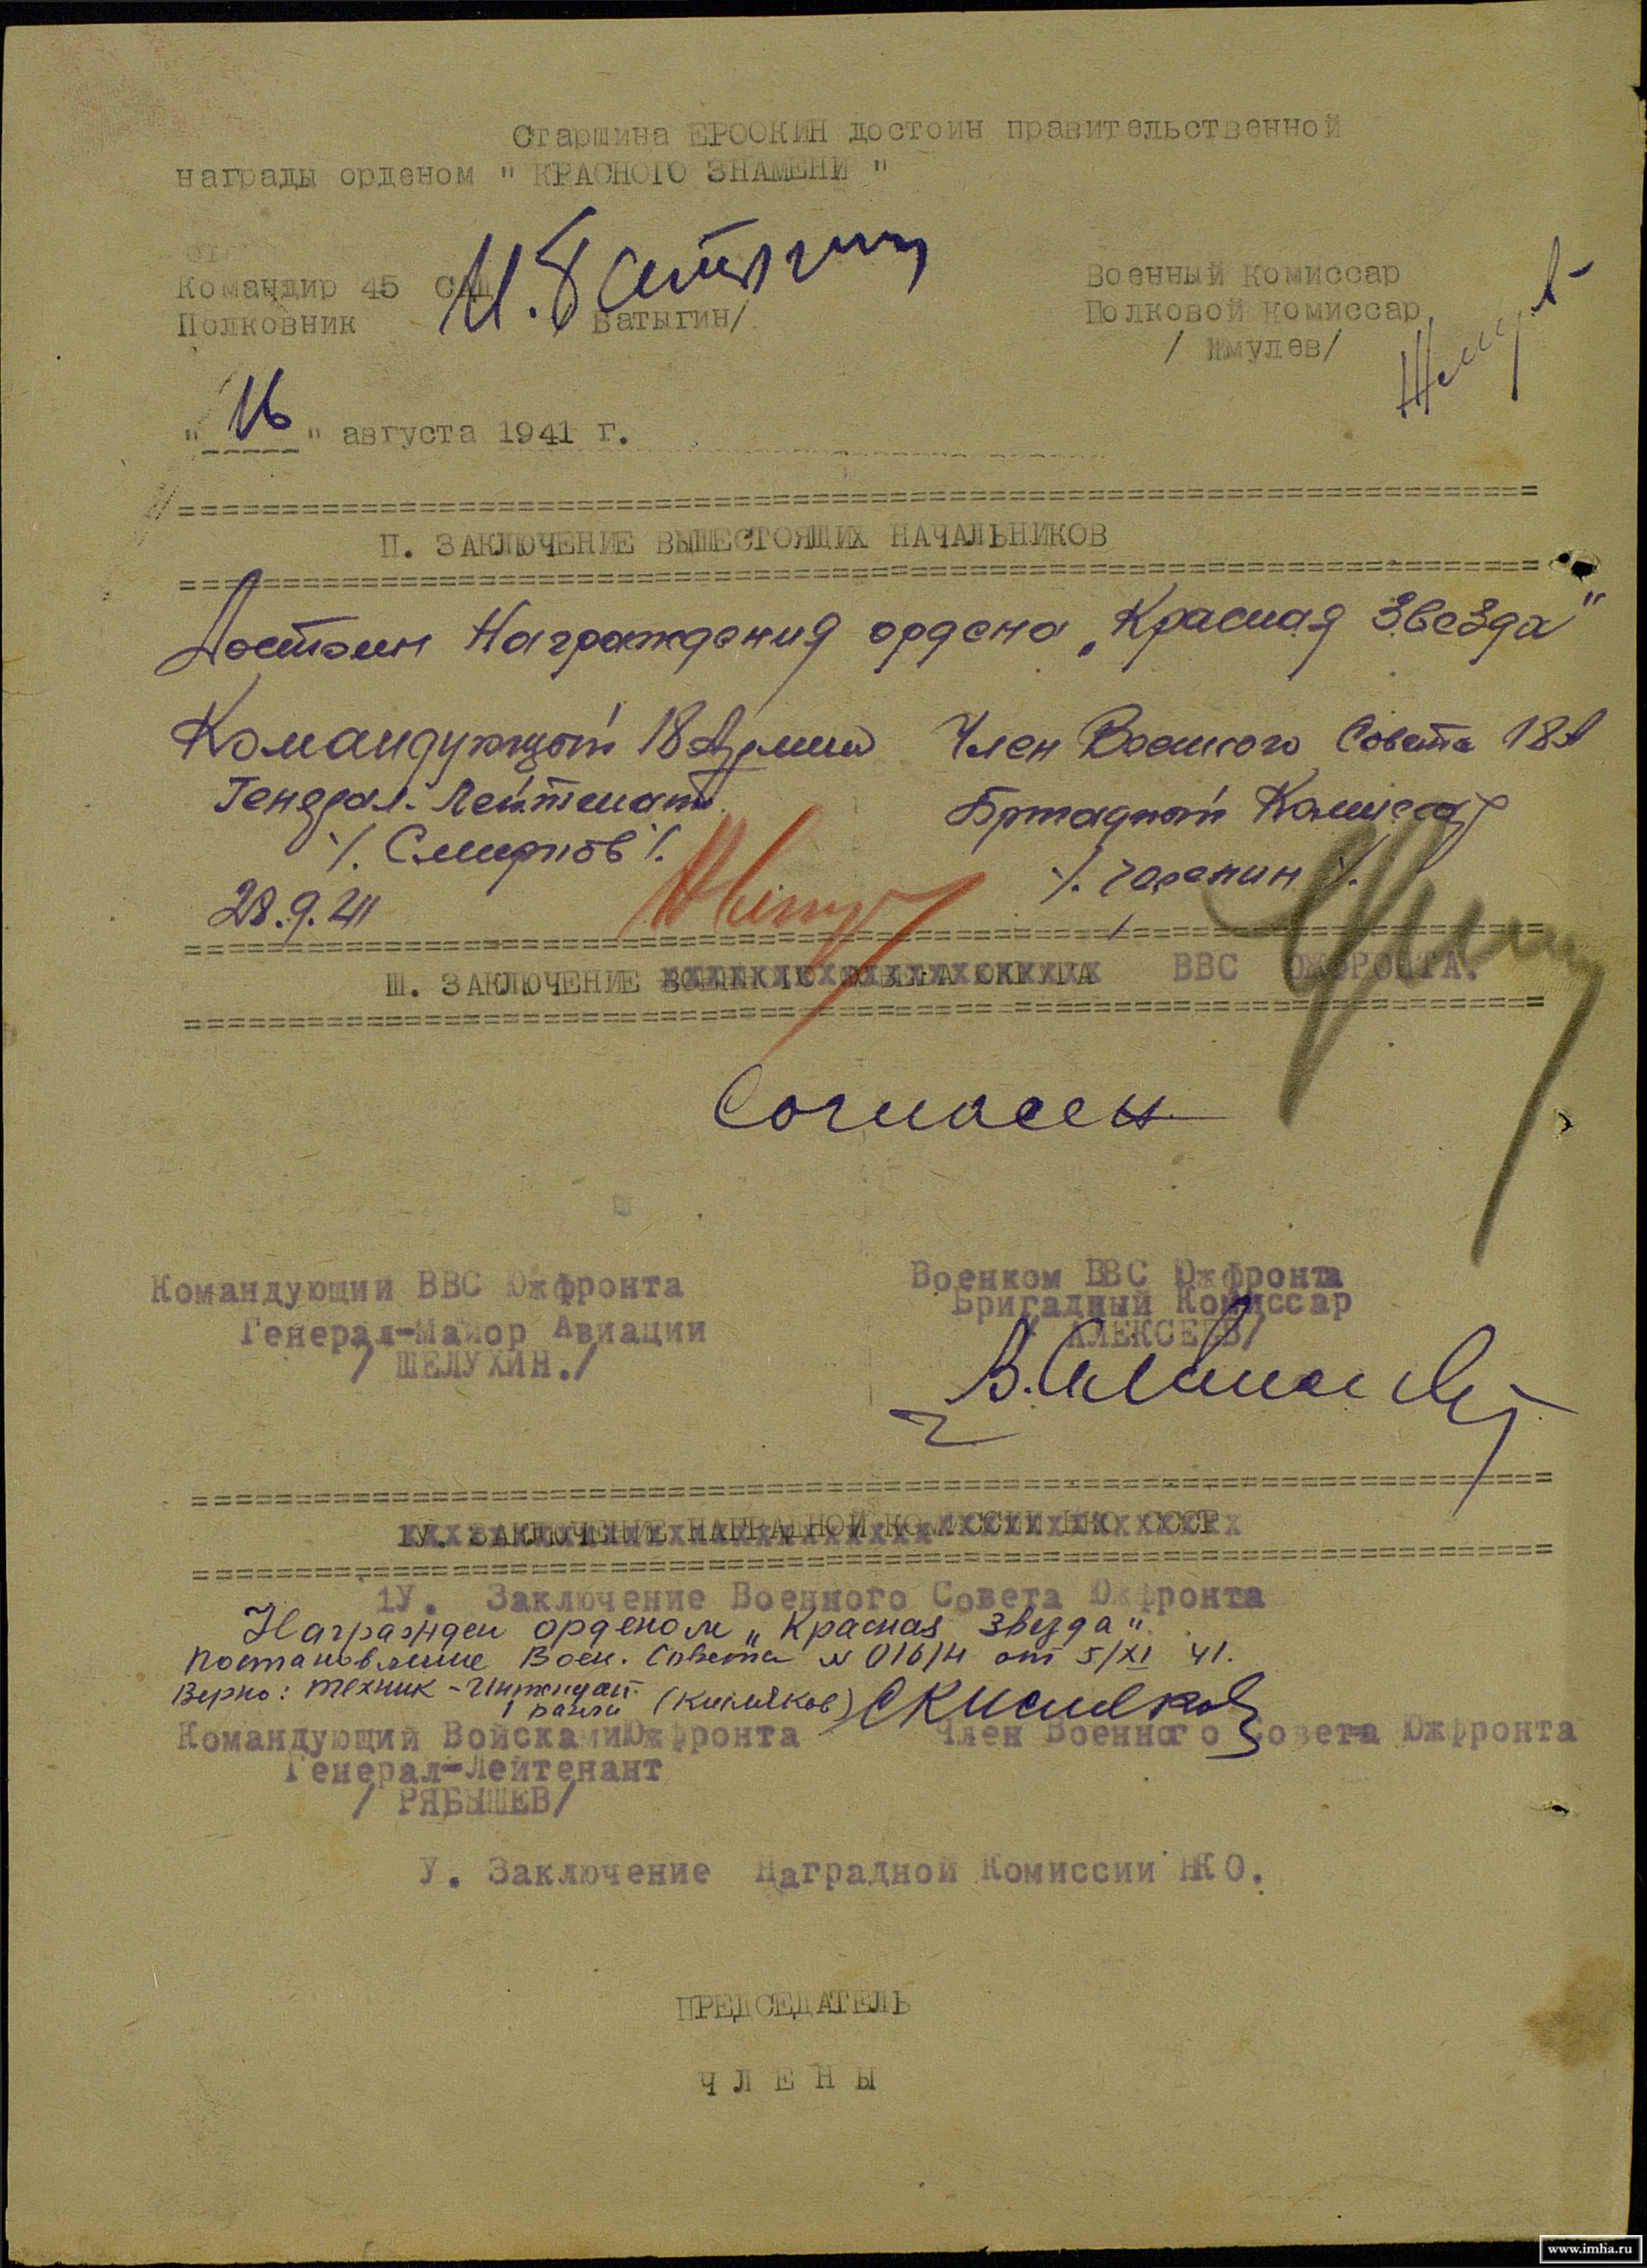 Старшина ЕРООКИН достоин правительственной
награды орденом " КРАСНОГО ЗНАМЕНИ "
И. Батыгин
Командир 45 САД
Полковник Батыгин/
Военный Комиссар
Полковой Комиссар
/ Жмулев/
"16" августа 1941 г.
П. ЗАКЛЮЧЕНИЕ ВЫШЕСТОЯЩИХ НАЧАЛЬНИКОВ
Достоин Награждения ордена „Красная Звезда"
Командующий 18 Армии Член Военного Совета 18А
Генерал-Лейтенант Бригадный Комиссар
/. Смирнов /.
28.9.41
Ш. ЗАКЛЮЧЕНИЕ ВОЕННОГО СОВЕТА ОКРУГА ВВС ЮЖФРОНТА.
Согласен
Командующии ВВС Южфронта
Генерал-Маиор Авиации
/ ШЕЛУХИН./
Военком ВВС Южфронта
Бригадный Комиссар
АЛЕКСЕЕВ/
1У. ЗАКЛЮЧЕНИЕ НАГРАДНОЙ КОМИССИИ НКО СССР
1У. Заключение Военного Совета Южфронта
Награжден орденом „Красная звезда"
Постановление Воен. Совета N 016/н от 5/XI 41.
Верно: техник-Интендант
1 ранга (Кисляков)
Командующий ВойскамиЮжфронта Член Военного Совета Южфронта
Генерал-Лейтенант
/ РЯБЫШЕВ/
У. Заключение Наградной Комиссии НКО.
ПРЕДСЕДАТЕЛЬ
Ч Л Е Н Ы
www.imha.ru